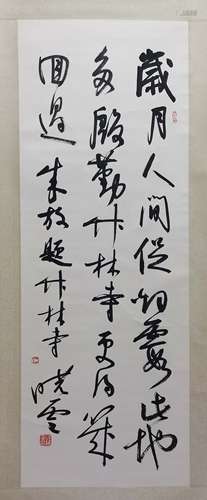 歲月人間促烟霞此地
多殷勤竹林寺更得幾
回過 朱放題竹林寺 曉雲